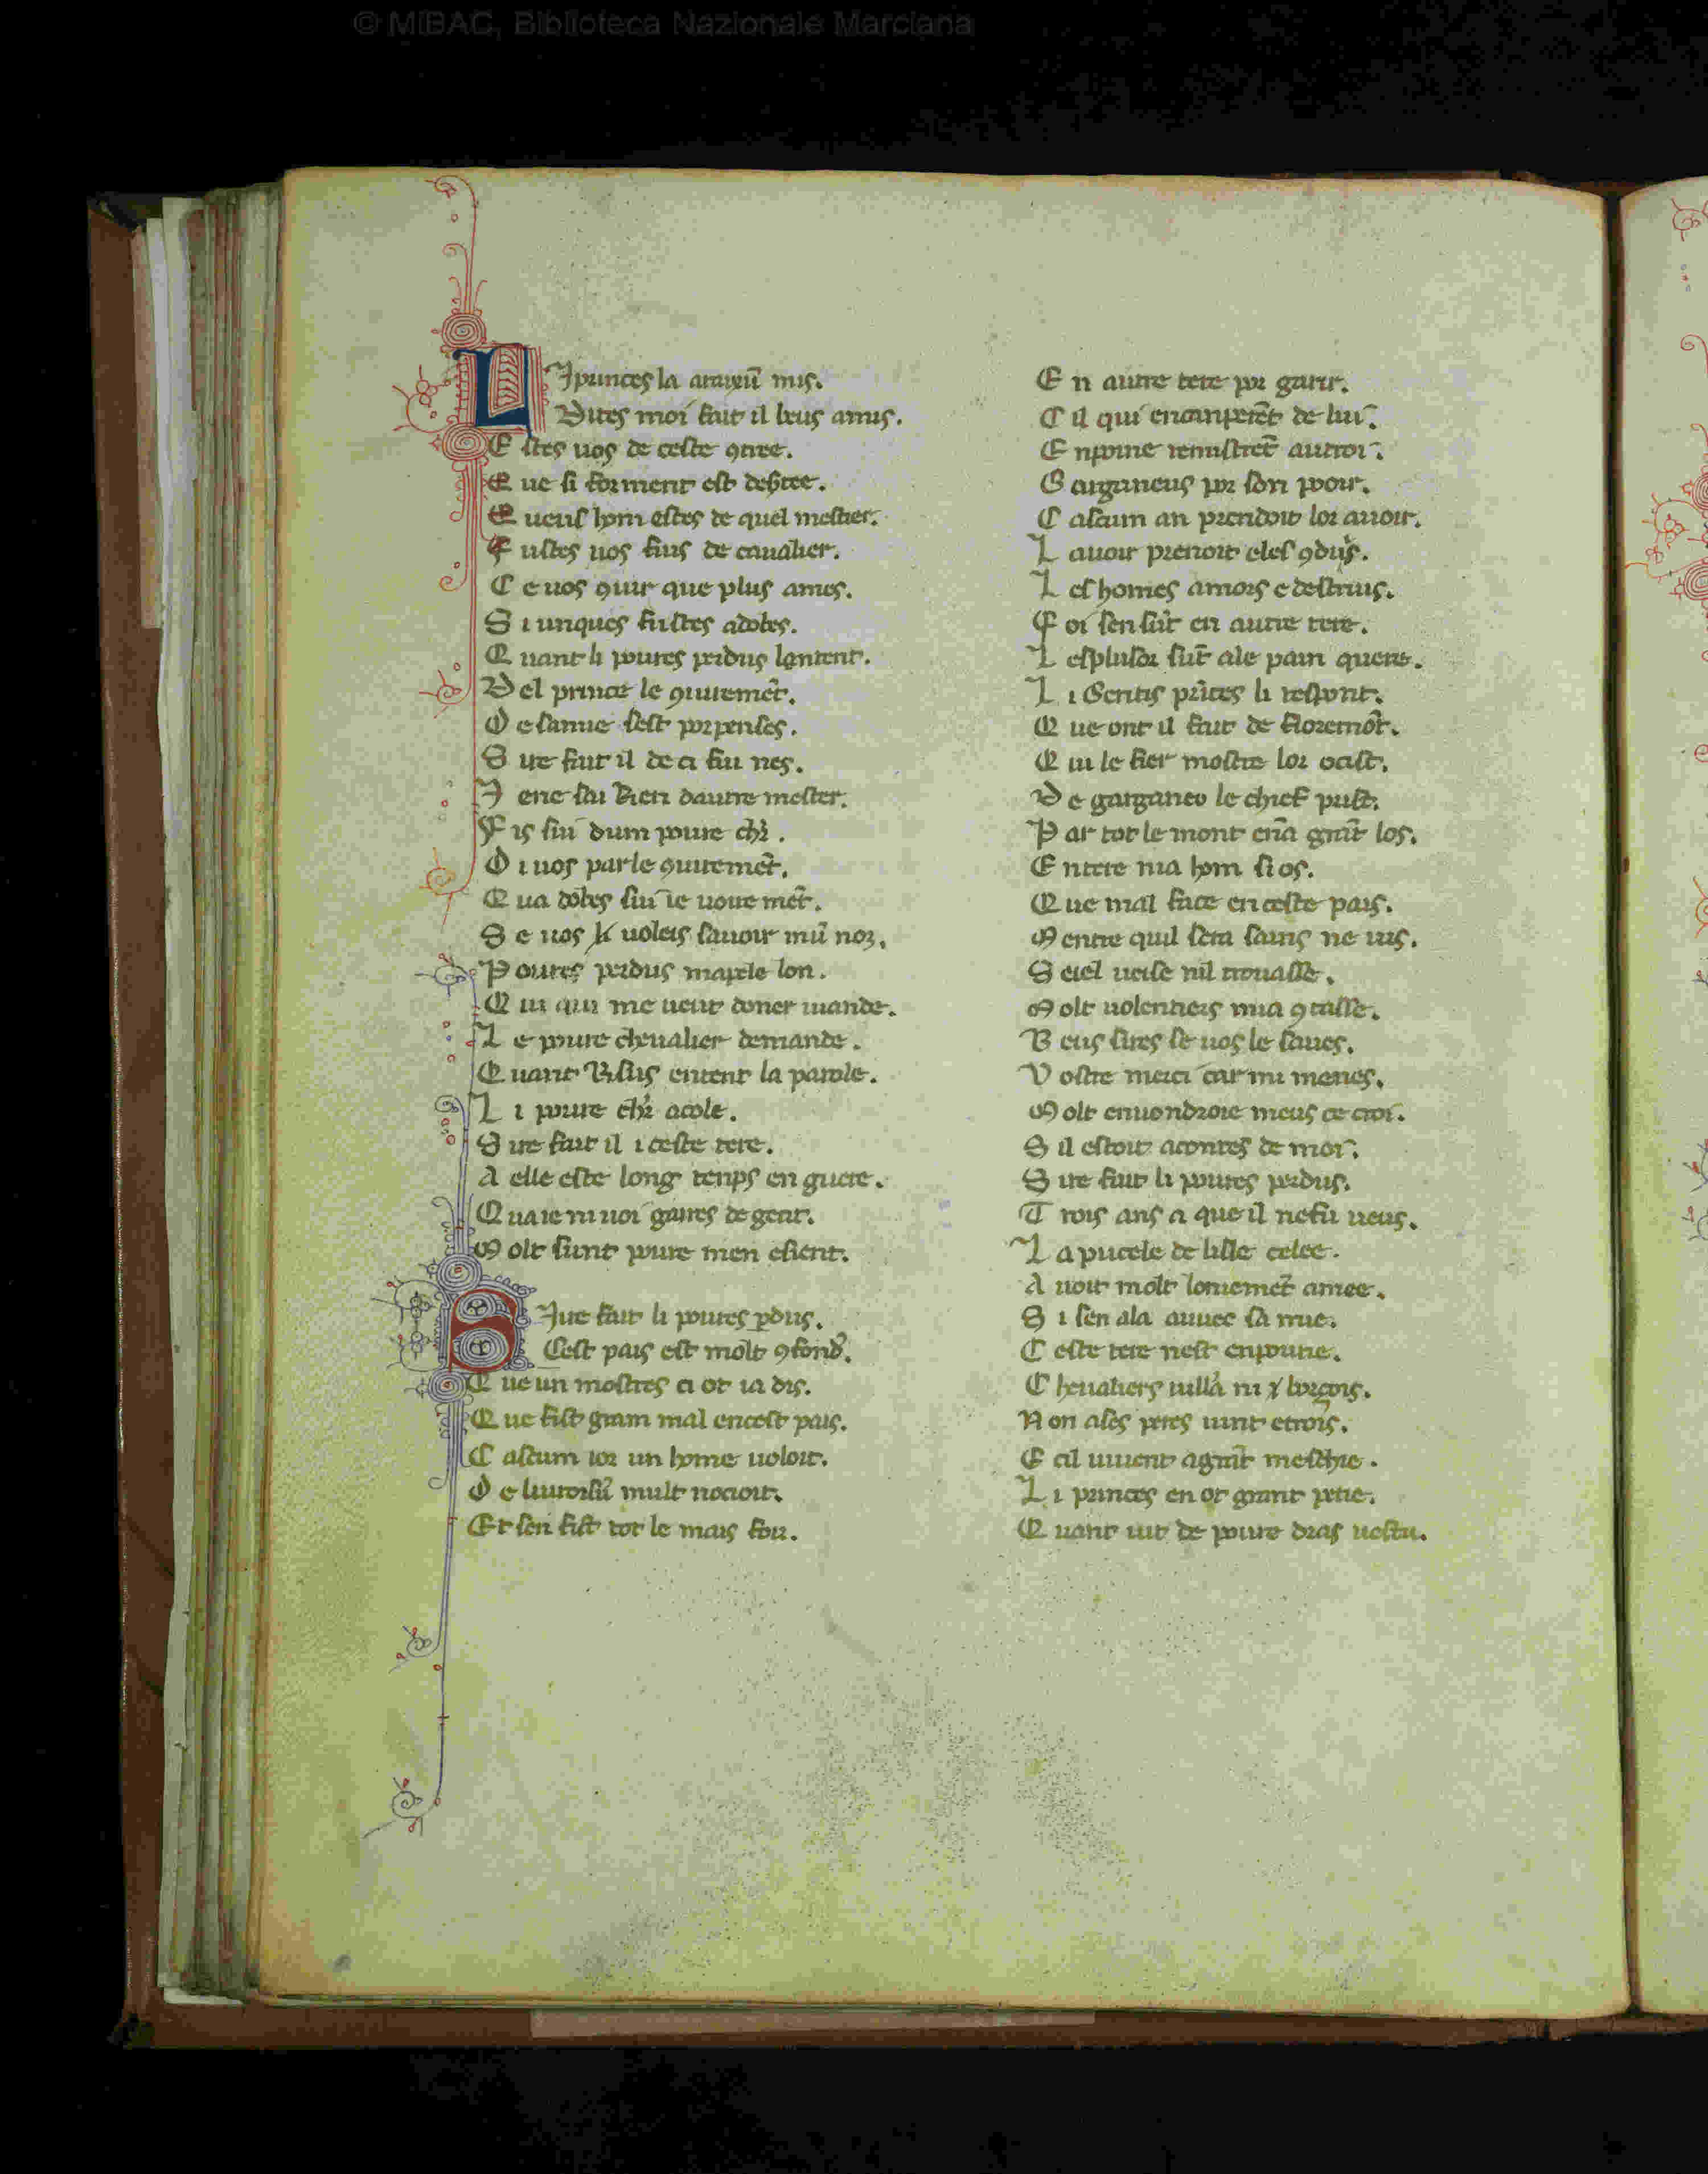 © MiBAC, Biblioteca Nazionale Marciana
LI princes la
Dites moi fait il beus amis.
E stes uos de ceste 9tree.
Q ue si forment est
Q ueus hom estes de quel mestier.
F ustes uos fiuis de caualier.
C e uos 9uir que plus ames.
S i unques fustes adobes.
Q uant li poures perdus lentent.
D el prince le 9uiremēt.
D e sanue sest porpenses.
S ire fait il de ci fui nes.
J ene sai Rien dautre mester.
F is sui dum poure chr̄.
D i uos parle 9uiremēt.
Q ua dobes sui ie uoire mēt.
S e uos uoleis sauoir mū nō.
P oures perdus mapele lon.
Q ui qui me ueut doner uiande.
L e poure cheualier demande.
Q uant entent la parole.
L i poure chr̄ acole.
S ire fait il i ceste tere.
A elle este long tenps en guere.
Q ua ie ni uoi gaires de gent.
M olt sunt poure men esient.
SIre fait li poures pdus.
Cest pais est molt 9fond9.
Q ue un mostres ci ot ia dis.
Q ue fist gram mal encest pais.
C ascum ior un home uoloit.
D e mult nocioit.
Et sen fist tot le mais fou.
E n autre tere por garir.
C il qui encanperēt de lui.
E npoine remistrēt autroi.
G arganeus por son pooir.
C ascum an prendoit lor auoir.
L auoir prenoit eles 9duis.
L es homes amors e destruis.
F oi sen sūt en autre tere.
L esplusor sūt ale pain quere.
L i Gentis prīces li respont.
Q ue ont il fait de floremōt.
Q ui le fier mostre lor ocist.
D e garganeo le chief prist.
P ar tot le mont enā grāt los.
E ntere nia hom si os.
Q ue mal face en ceste pais.
M entre quil sera sains ne uis.
S eiel ueise nil trouasse.
M olt uolentiers mia 9tasse.
B eus sires se uos le saues.
V ostre merci car mi menes.
M olt enuondroie meus ce croi.
S il estoit acontes de moi.
S ire fait li poures perdus.
T rois ans a que il nefu ueus.
L a pucele de lisle celee.
A uoit molt loniemēt amee.
S i sen ala auuec sa mie.
C este tere nest enpourie.
C heualiers uillā ni borçois.
N on ases peres uint etrois.
E cil uiuent agrāt meschie.
L i princes en ot grant petie.
Q uant uit de poure dras uestu.